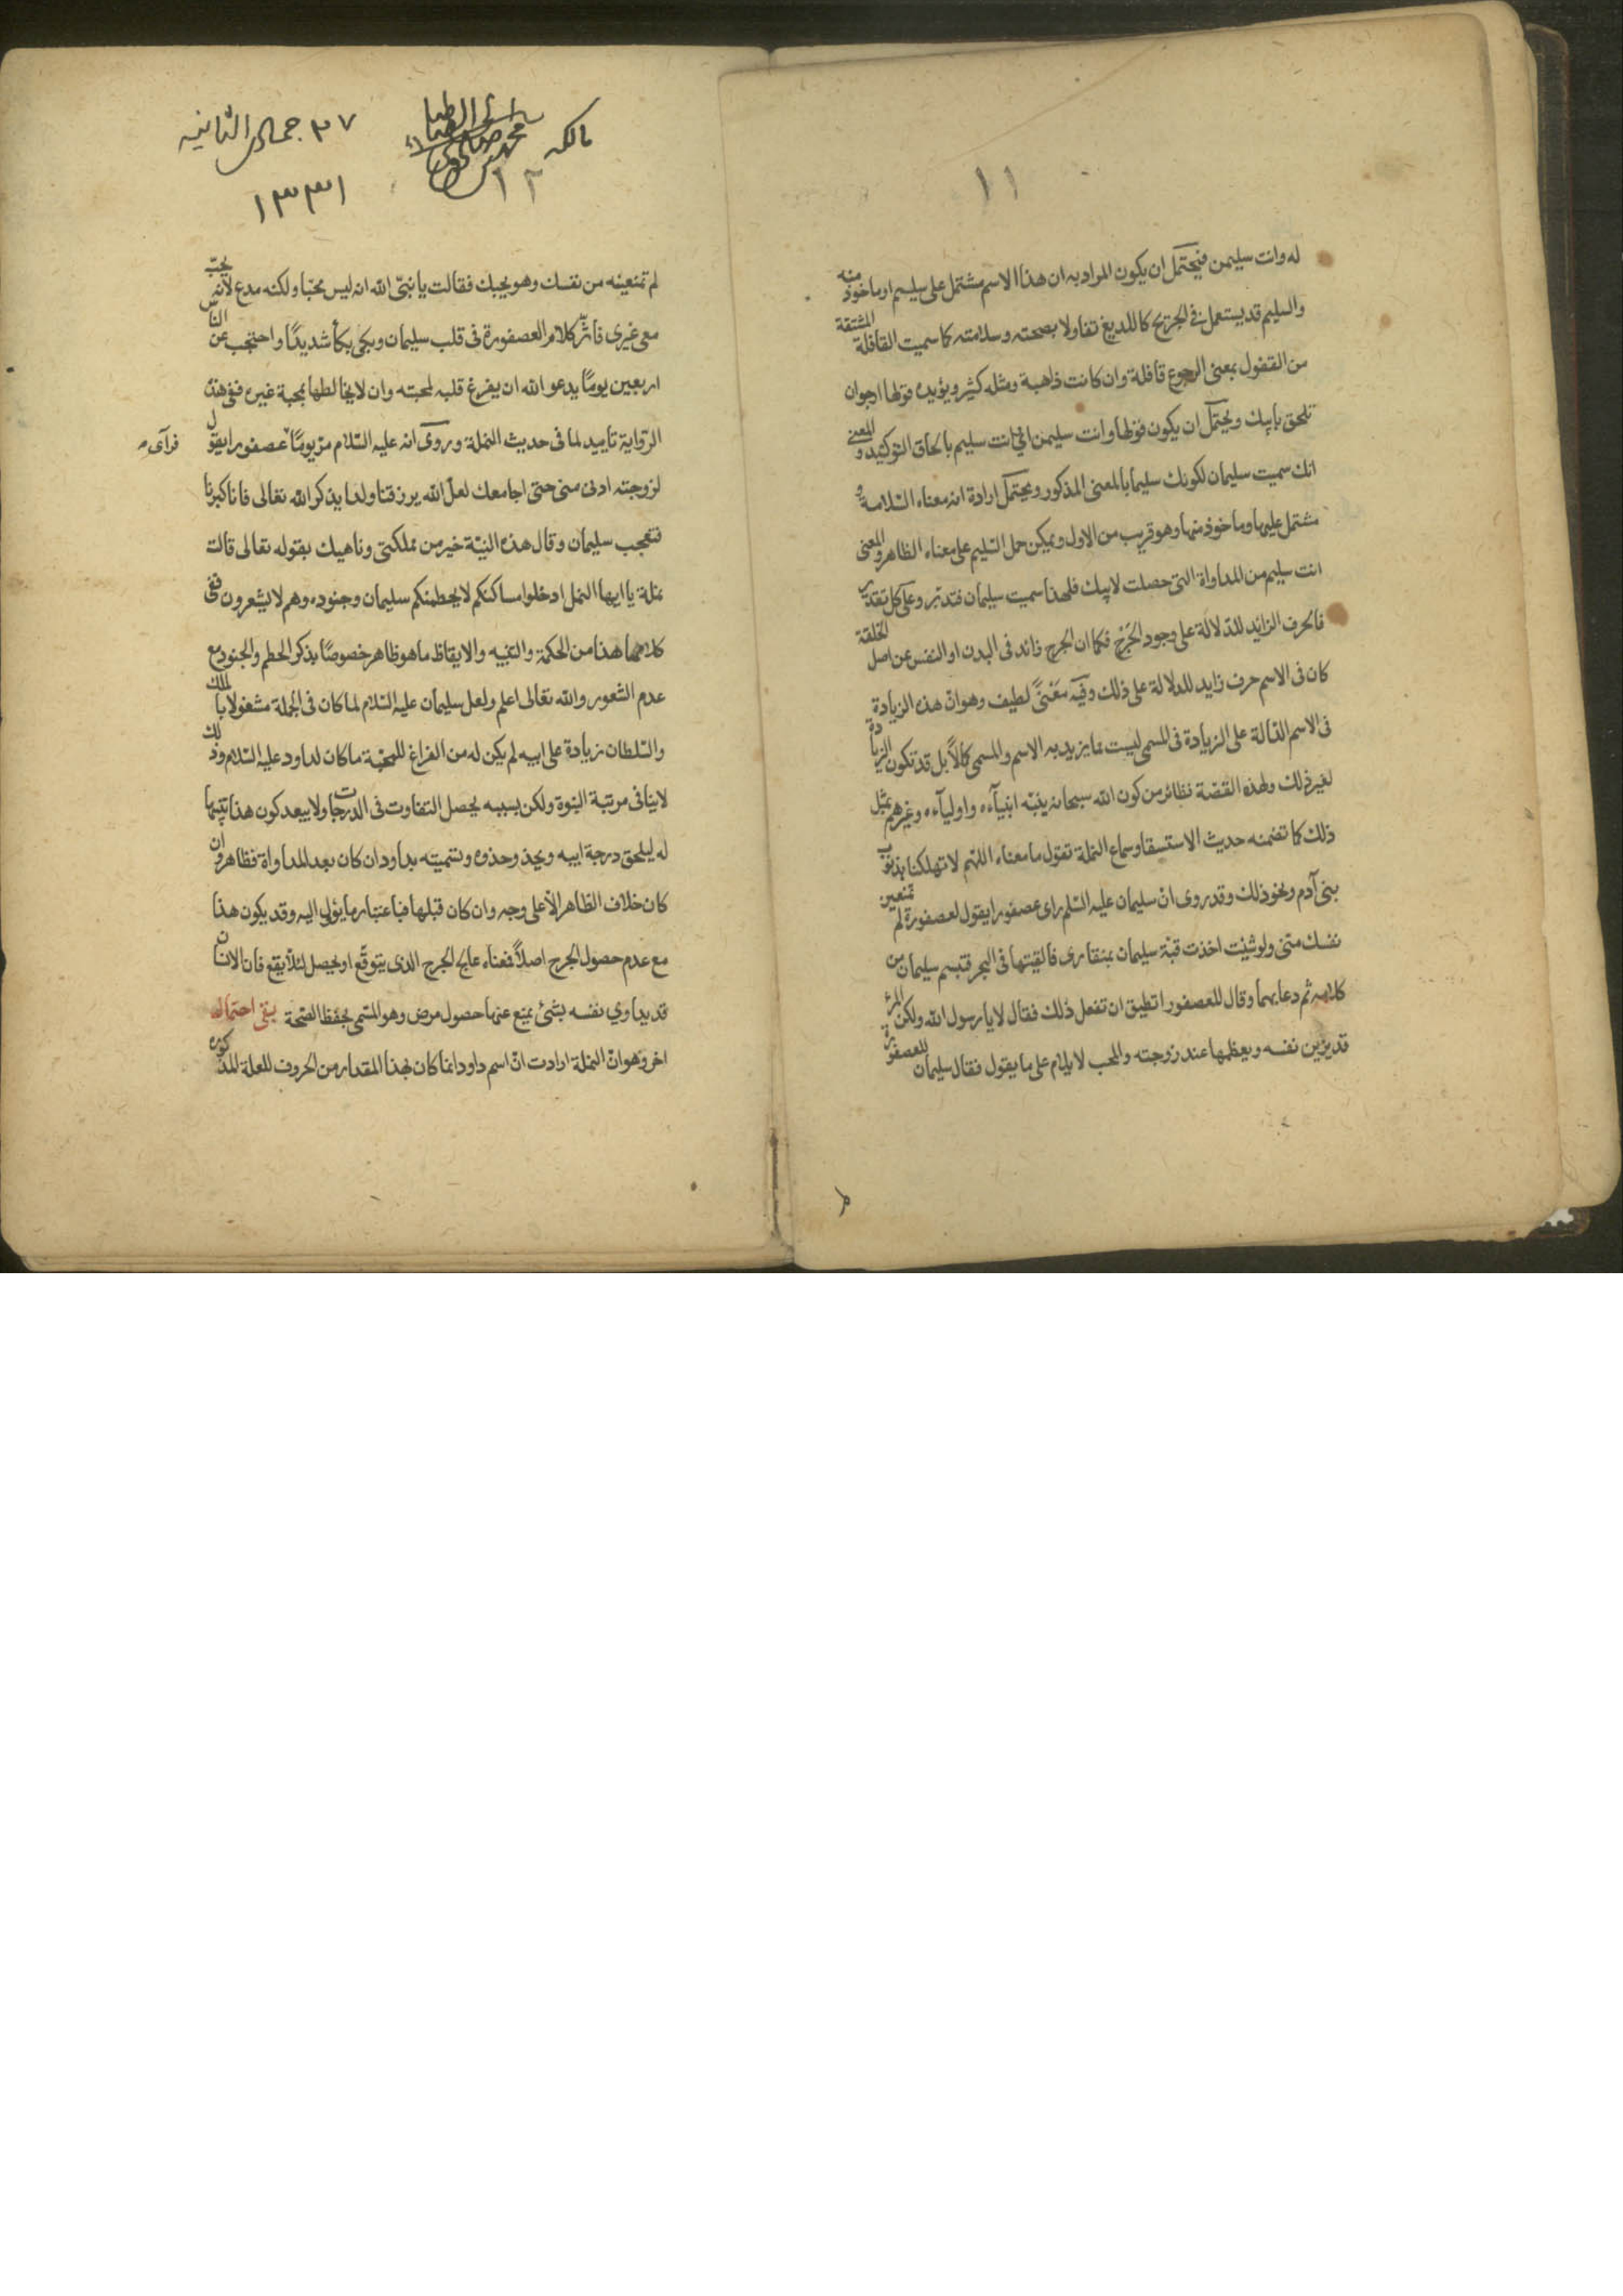 ١١
له وانت سليمن فيحتمل ان يكون المراد به ان هذا الاسم مشتمل على سليم او ماخوذ منه
والسليم قد يستعمل فى الجريح كاللديغ تفاولا بصحته وسلامته كما سميت القافلة المشتقة
من القفول بمعنى الرجوع قافلة وان كانت ذاهبة ومثله كثير ويؤيده قولها ارجو ان
تلحق بابيك ويحتمل ان يكون قولها وانت سليمن اى انت سليم بالحاق التوكيد والمعنى
انك سميت سليمان لكونك سليما بالمعنى المذكور ويحتمل ارادة انه معناه السلامة و
مشتمل عليها وماخوذ منها وهو قريب من الاول ويمكن حمل السليم على معناه الظاهر والمعنى
انت سليم من المداواة التى حصلت لابيك فلهذا سميت سليمان فتدبر وعلى كل تقدير
فالحرف الزايد للدلالة على وجود الجرح فكما ان الجرح زائد فى البدن او النفس عن اصل الخلقة
كان فى الاسم حرف زايد للدلالة على ذلك وفيه معنى لطيف وهو ان هذه الزيادة
فى الاسم الدالة على الزيادة فى المسمى ليست مما يزيد به الاسم والمسمى كمالا بل قد تكون الزيادة
لغير ذلك ولهذه القصة نظائر من كون الله سبحانه ينبه انبيآءه واوليآءه وغيرهم بمثل
ذلك كما تضمنه حديث الاستسقا وسماع النملة تقول ما معناه اللهم لا تهلكنا بذنوب
بنى آدم ونحو ذلك وقد روى ان سليمان عليه السلم راى عصفورا يقول لعصفورة لم تمنعين
نفسك منى ولو شئت اخذت قبة سليمان بمنقارى فالقيتها فى البحر فتبسم سليمان من
كلامه ثم دعا بهما وقال للعصفور اتطيق ان تفعل ذلك فقال لا يا رسول الله ولكن المرء
قد يزين نفسه ويعظمها عند زوجته والمحب لا يلام على ما يقول فقال سليمان للعصفورة
مالكه
محمد
١٢
٢٧ جمادى الثانيه
١٣٣١
لم تمنعينه من نفسك وهو يحبك فقالت يا نبى الله انه ليس محبا ولكنه مدع لانه يحب
معى غيرى فاثر كلام العصفورة فى قلب سليمان وبكى بكآ شديدا واحتجب عن الناس
اربعين يوما يدعو الله ان يفرغ قلبه لمحبته وان لا يخالطها بمحبة غيره ففى هذه
الرواية تاييد لما فى حديث النملة وروى انه عليه السلام مر يوما عصفورا يقول
فرآى
لزوجته ادنى منى حتى اجامعك لعل الله يرزقنا ولدا يذكر الله تعالى فانا كبرنا
فتعجب سليمان وقال هذه النية خير من مملكتى وناهيك بقوله تعالى قالت
نملة يا ايها النمل ادخلوا مساكنكم لا يحطمنكم سليمان وجنوده وهم لا يشعرون ففى
كلامها هذا من الحكمة والتنبيه والايقاظ ما هو ظاهر خصوصا بذكر الحطم والجنود مع
عدم الشعور والله تعالى اعلم ولعل سليمان عليه السلام لما كان فى الجملة مشغولا بالملك
والسلطان زيادة على ابيه لم يكن له من الفراغ للمحبة ما كان لداود عليه السلام وذلك
لا ينافى مرتبة النبوة ولكن بسببه يحصل التفاوت فى الدرجات ولا يبعد كون هذا تنبيها
له ليلحق درجة ابيه ويحذو حذوه وتسميته بداود ان كان بعد المداواة فظاهر وان
كان خلاف الظاهر الا على وجه وان كان قبلها فباعتبار ما يؤل اليه وقد يكون هذا
مع عدم حصول الجرح اصلا فمعناه عالج الجرح الذى يتوقع او يحصل لئلا يقع فان الانسان
قد يداوي نفسه بشئ يمنع عنها حصول مرض وهو المسمى بحفظ الصحة بقى احتمال
اخر وهو ان النملة ارادت ان اسم داود انما كان بهذا المقدار من الحروف للعلة المذكورة